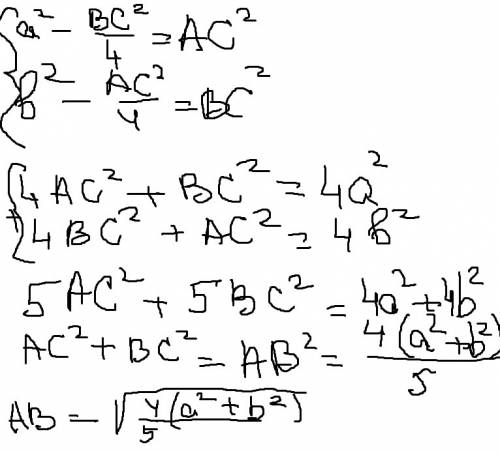 {a² − BC²/4 = AC²
b² − AC²/4 = BC²
{4AC² + BC² = 4a²
+ 4BC² + AC² = 4b²
5AC² + 5BC² = 4a² + 4b²
AC² + BC² = AB² = 4(a² + b²)/5
AB = √(4/5(a² + b²))